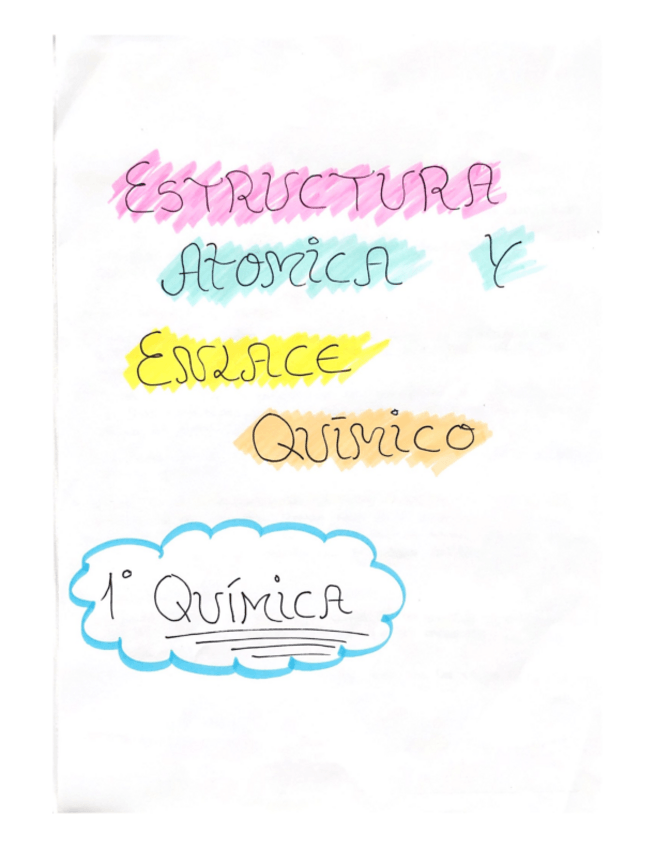 ESTRUCTURA
ATOMICA Y
ENLACE
QUÍMICO
1° QUÍMICA